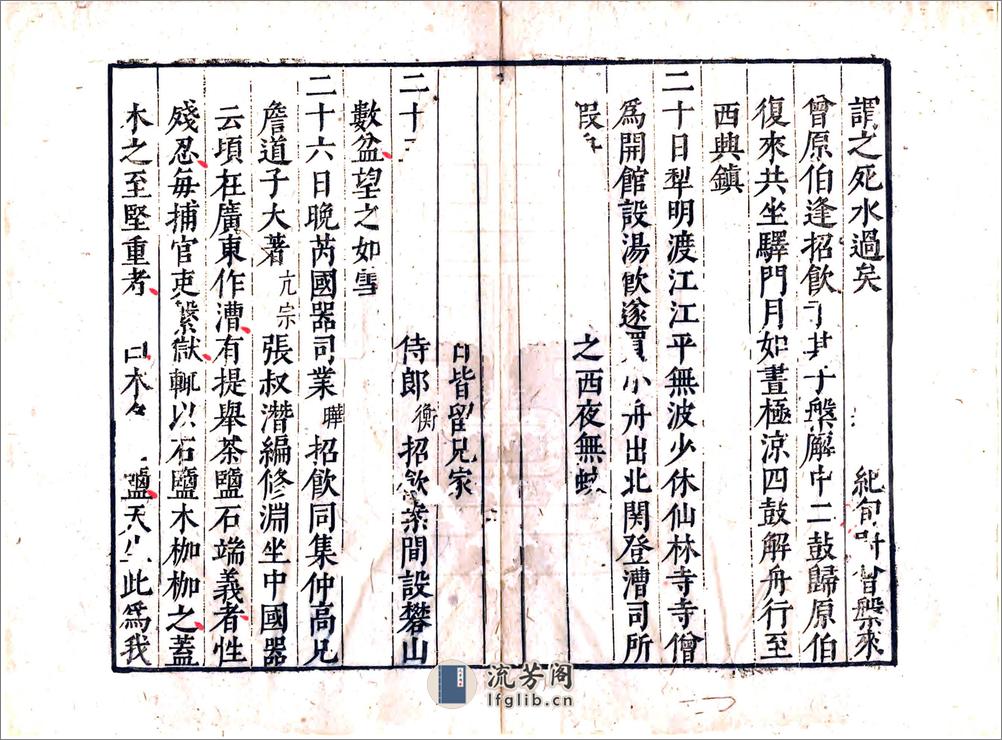 謂之死水過矣 紀旬 曾槃來
曾原伯逢招飮于其子槃廨中二鼓歸原伯
復來共坐驛門月如晝極涼四鼓解舟行至
西興鎮
二十日犁明渡江江平無波少休仙林寺寺僧
爲開館設湯飮遂買小舟出北関登漕司所
假 之西夜無蚊
日皆留兄家
二十 侍郎衡招飮案間設礬山
數盆望之如雪
二十六日晚芮國器司業曄招飮同集仲高兄
詹道子大著亢宗張叔潛編修淵坐中國器
云頃在廣東作漕有提舉茶鹽石端義者性
殘忍每捕官吏繫獄輒以石鹽木枷枷之蓋
木之至堅重者 木名 鹽天生此爲我
流芳阁
lfglib.cn